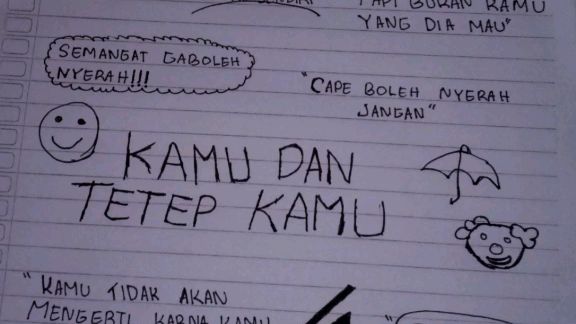 TAPI BUKAN KAMU
YANG DIA MAU"
SEMANGAT GABOLEH
NYERAH!!!
"CAPE BOLEH NYERAH
JANGAN"
KAMU DAN
TETEP KAMU
"KAMU TIDAK AKAN
MENGERTI KARNA KAMU